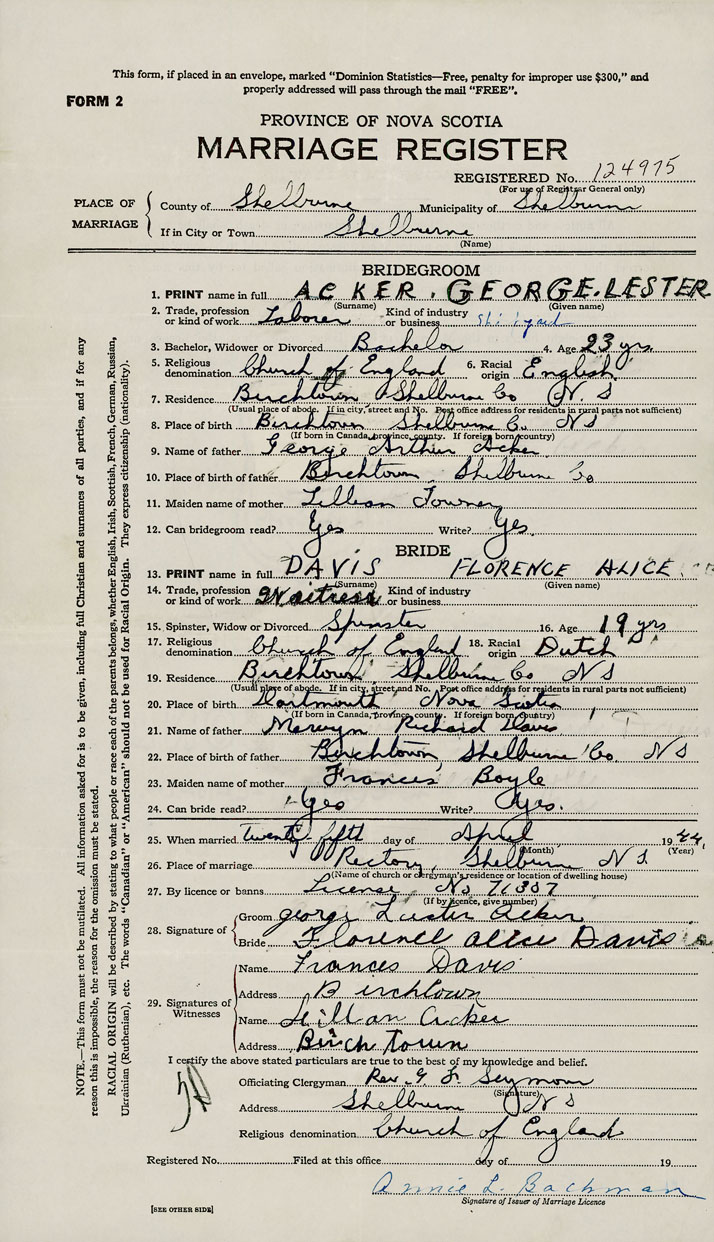 This form, if placed in an envelope, marked "Dominion Statistics—Free, penalty for improper use $300," and
properly addressed will pass through the mail "FREE".
FORM 2
PROVINCE OF NOVA SCOTIA
MARRIAGE REGISTER
REGISTERED No. 124975
(For use of Registrar General only)
PLACE OF MARRIAGE
County of Shelburne Municipality of Shelburne
If in City or Town Shelburne
(Name)
BRIDEGROOM
1. PRINT name in full ACKER, GEORGE LESTER
(Surname) (Given name)
2. Trade, profession or kind of work Laborer Kind of industry or business Shipyard
3. Bachelor, Widower or Divorced Bachelor 4. Age 23 yrs
5. Religious denomination Church of England 6. Racial origin English
7. Residence Birchtown Shelburne Co N.S
(Usual place of abode. If in city, street and No. Post office address for residents in rural parts not sufficient)
8. Place of birth Birchtown Shelburne Co. N S
(If born in Canada, province, county. If foreign born, country)
9. Name of father George Arthur Acker
10. Place of birth of father Birchtown Shelburne Co
11. Maiden name of mother Lillian Towner
12. Can bridegroom read? Yes Write? Yes.
BRIDE
13. PRINT name in full DAVIS FLORENCE ALICE
(Surname) (Given name)
14. Trade, profession or kind of work Waitress Kind of industry or business
15. Spinster, Widow or Divorced Spinster 16. Age 19 yrs
17. Religious denomination Church of England 18. Racial origin Dutch
19. Residence Birchtown Shelburne Co N S
(Usual place of abode. If in city, street and No. Post office address for residents in rural parts not sufficient)
20. Place of birth Dartmouth Nova Scotia
(If born in Canada, province, county. If foreign born, country)
21. Name of father Mervyn Richard Davis
22. Place of birth of father Birchtown, Shelburne Co. N S
23. Maiden name of mother Frances Boyle
24. Can bride read? Yes Write? Yes.
25. When married twenty fifth day of April 1944.
(Month) (Year)
26. Place of marriage Rectory, Shelburne N S.
(Name of church or clergyman's residence or location of dwelling house)
27. By licence or banns License No 71357
(If by licence, give number)
28. Signature of
Groom george Lester acker
Bride Florence alice Davis
29. Signatures of Witnesses
Name Frances Davis
Address Birchtown
Name Lillian Acker
Address Birch town
I certify the above stated particulars are true to the best of my knowledge and belief.
Officiating Clergyman Rev. G F Seymour
(Signature)
Address Shelburne N S
Religious denomination Church of England
Registered No. Filed at this office day of 19
Annie L. Bachman
Signature of Issuer of Marriage Licence
[SEE OTHER SIDE]
NOTE.—This form must not be mutilated. All information asked for is to be given, including full Christian and surnames of all parties, and if for any
reason this is impossible, the reason for the omission must be stated.
RACIAL ORIGIN will be described by stating to what people or race each of the parents belongs, whether English, Irish, Scottish, French, German, Russian,
Ukrainian (Ruthenian), etc. The words "Canadian" or "American" should not be used for Racial Origin. They express citizenship (nationality).